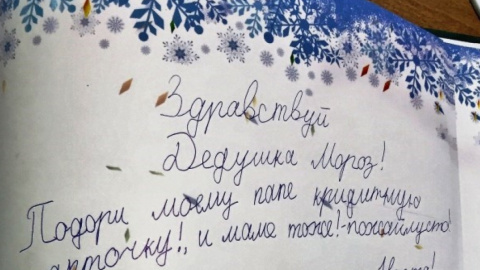 Здравствуй
Дедушка Мороз!
Подори моему папе кридитную
карточку!, и маме тоже!-пожайлуста!